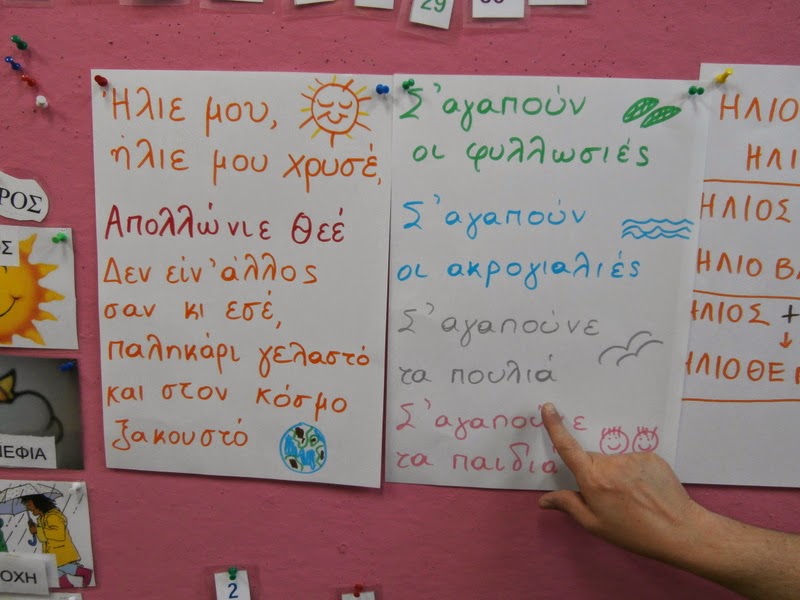 29
Ήλιε μου,
ήλιε μου χρυσέ,
Απολλώνιε Θεέ
Δεν είν' άλλος
σαν κι εσέ,
παληκάρι γελαστό
και στον κόσμο
ξακουστό
Σ' αγαπούν
οι φυλλωσιές
Σ' αγαπούν
οι ακρογιαλιές
Σ' αγαπούνε
τα πουλιά
Σ' αγαπούνε
τα παιδιά
ΗΛΙΟ
ΗΛΙ
ΗΛΙΟΣ
ΗΛΙΟ ΒΑ
ΗΛΙΟΣ +
ΗΛΙΟΘΕ
ΡΟΣ
ΟΣ
ΝΕΦΙΑ
ΟΧΗ
2